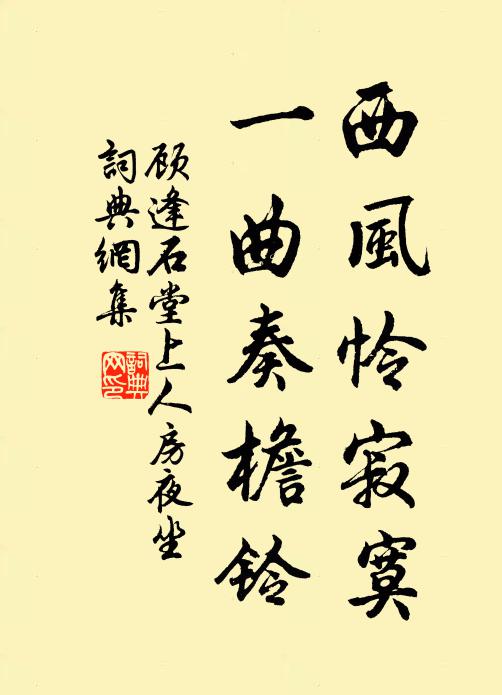 西風怜寂寞
一曲奏檐铃
顾逢石堂上人房夜坐
詞典網集
詞典网印